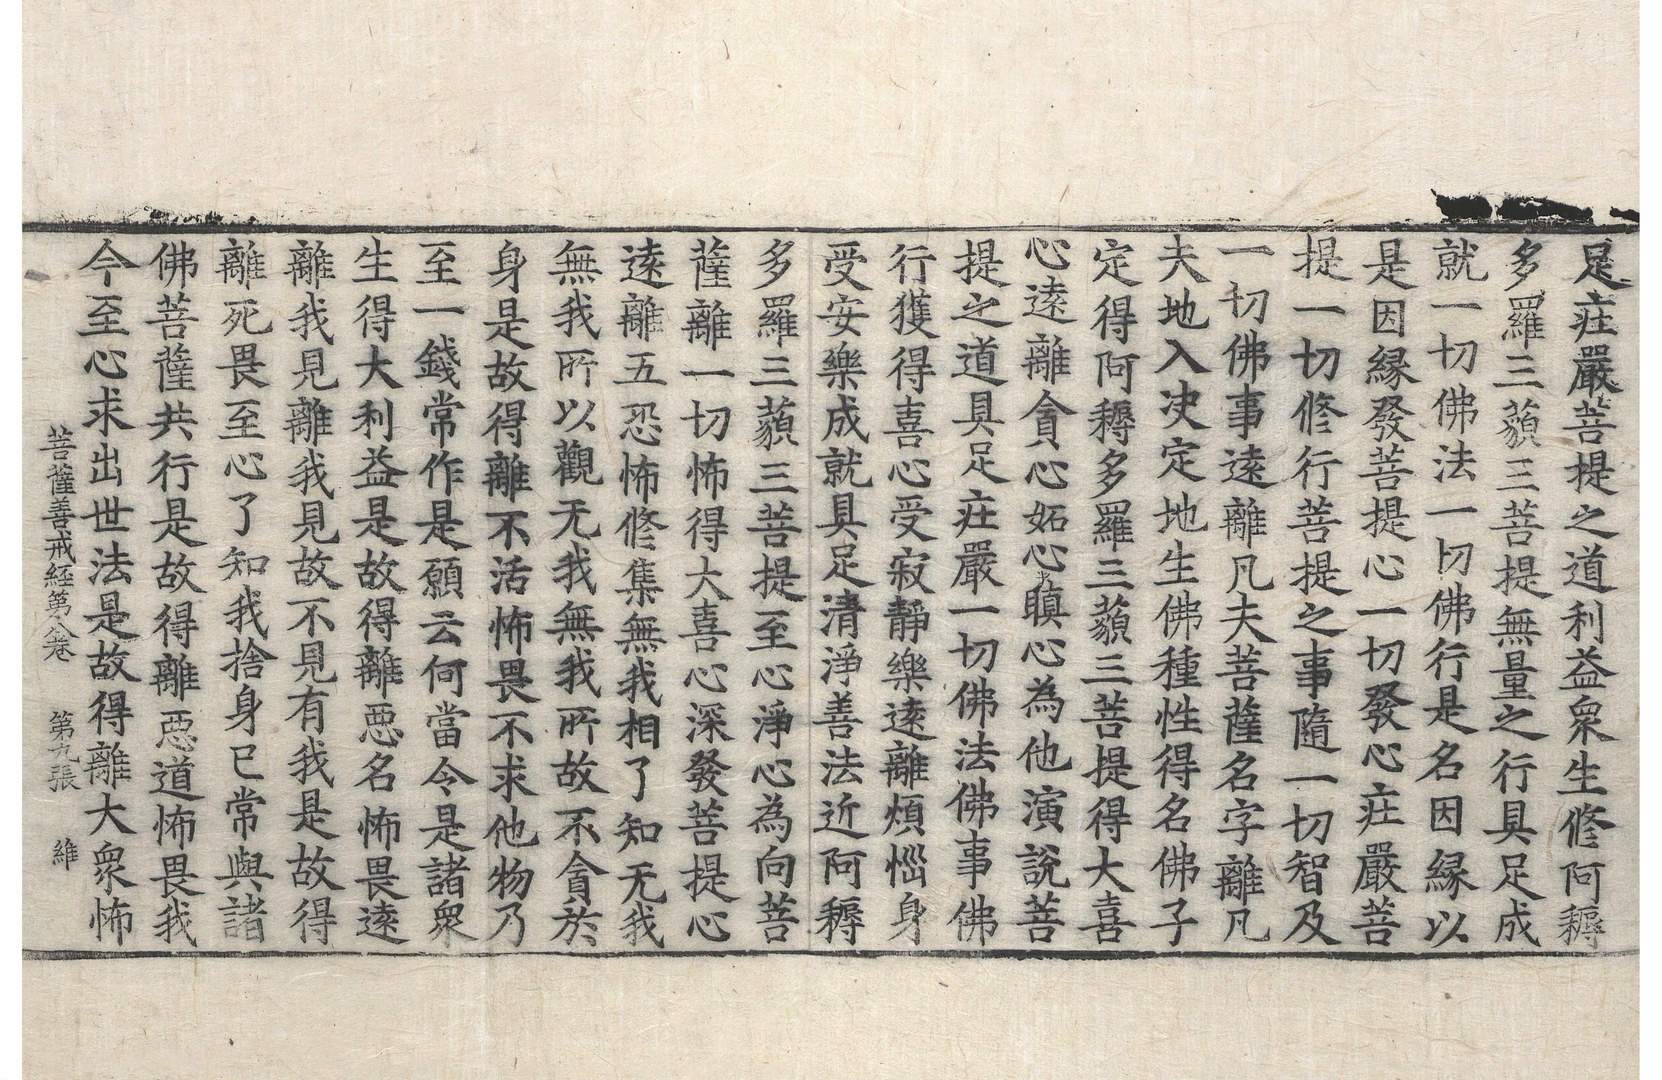 足莊嚴菩提之道利益衆生修阿耨
多羅三藐三菩提無量之行具足成
就一切佛法一切佛行是名因縁以
是因縁發菩提心一切發心莊嚴菩
提一切修行菩提之事隨一切智及
一切佛事逺離凡夫菩薩名字離凡
夫地入决定地生佛種性得名佛子
定得阿耨多羅三藐三菩提得大喜
心逺離貪心妬心瞋心為他演說菩
提之道具足莊嚴一切佛法佛事佛
行獲得喜心受寂靜樂逺離煩惱身
受安樂成就具足清淨善法近阿耨
多羅三藐三菩提至心淨心為向菩
薩離一切怖得大喜心深發菩提心
逺離五恐怖修集無我相了知无我
無我所以觀无我無我所故不貪於
身是故得離不活怖畏不求他物乃
至一錢常作是願云何當令是諸衆
生得大利益是故得離惡名怖畏逺
離我見離我見故不見有我是故得
離死畏至心了知我捨身已常與諸
佛菩薩共行是故得離惡道怖畏我
今至心求出世法是故得離大衆怖
菩薩善戒經第八卷　第九張　維